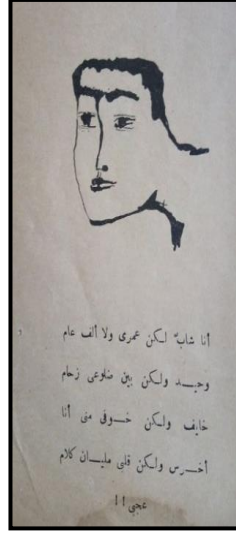 أنا شابّ لكن عمرى ولا ألف عام
وحيد ولكن بين ضلوعى زحام
خايف ولكن خوفى منى أنا
أخرس ولكن قلبى مليان كلام
عجبى !!